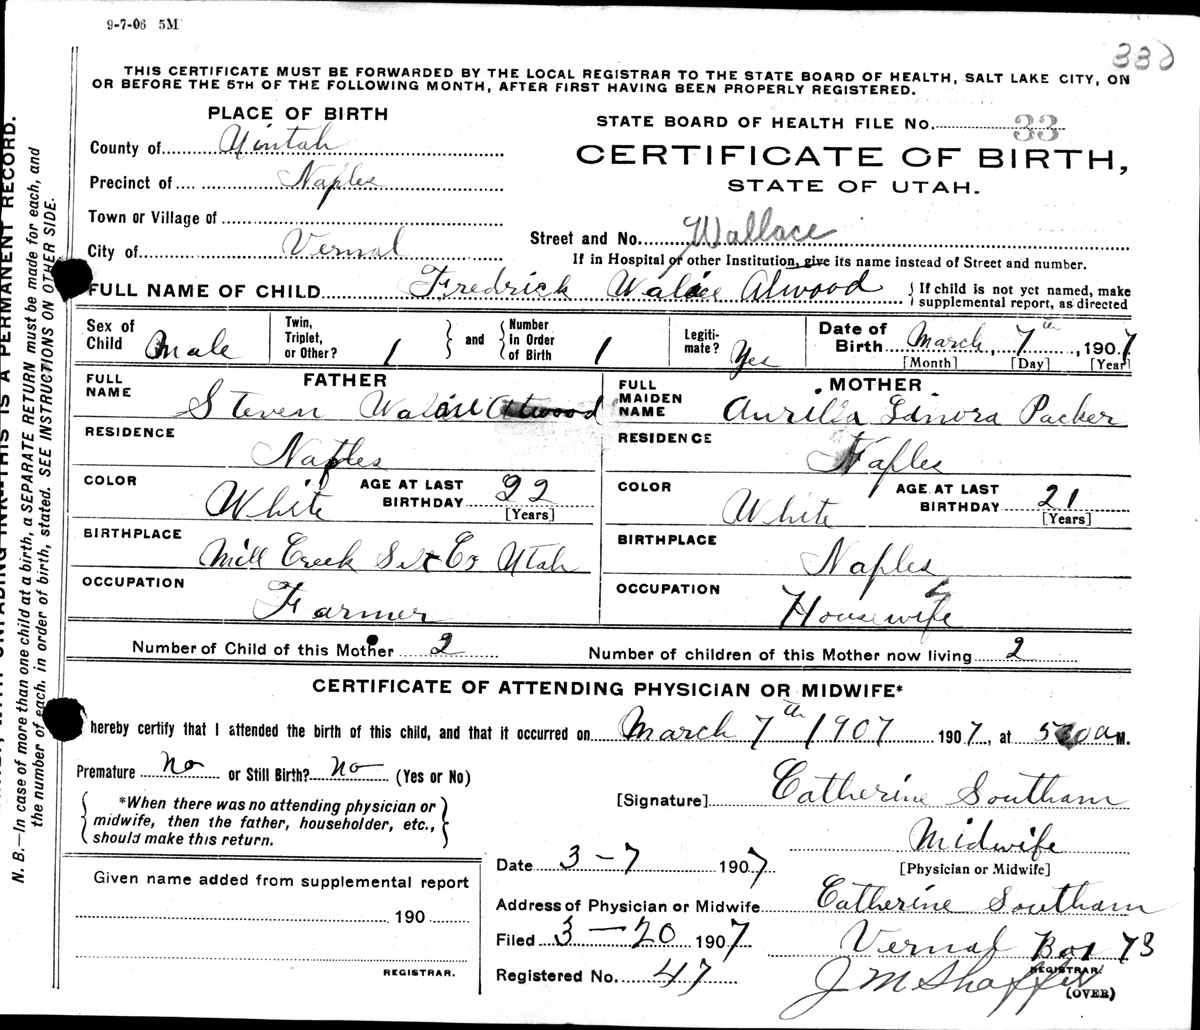 9-7-06 5M
338
THIS CERTIFICATE MUST BE FORWARDED BY THE LOCAL REGISTRAR TO THE STATE BOARD OF HEALTH, SALT LAKE CITY, ON
OR BEFORE THE 5TH OF THE FOLLOWING MONTH, AFTER FIRST HAVING BEEN PROPERLY REGISTERED.
PLACE OF BIRTH
County of Uintah
Precinct of Naples
Town or Village of
City of Vernal
STATE BOARD OF HEALTH FILE No. 33
CERTIFICATE OF BIRTH,
STATE OF UTAH.
Street and No. Wallace
If in Hospital or other Institution, give its name instead of Street and number.
FULL NAME OF CHILD Fredrick Walace Atwood { If child is not yet named, make
supplemental report, as directed
Sex of Child Male
Twin, Triplet, or Other? 1 } and { Number In Order of Birth 1
Legitimate? Yes
Date of Birth March 7th, 1907
[Month] [Day] [Year]
FATHER
FULL NAME Steven Atwood
RESIDENCE Naples
COLOR White AGE AT LAST BIRTHDAY 22 [Years]
BIRTHPLACE Mill Creek Co Utah
OCCUPATION Farmer
MOTHER
FULL MAIDEN NAME Aurilla Packer
RESIDENCE Naples
COLOR White AGE AT LAST BIRTHDAY 21 [Years]
BIRTHPLACE Naples
OCCUPATION Housewife
Number of Child of this Mother 2
Number of children of this Mother now living 2
CERTIFICATE OF ATTENDING PHYSICIAN OR MIDWIFE*
hereby certify that I attended the birth of this child, and that it occurred on March 7th 1907 1907, at a M.
Premature no or Still Birth? no (Yes or No)
{ *When there was no attending physician or
midwife, then the father, householder, etc.,
should make this return. }
[Signature] Catherine Southam
Midwife
[Physician or Midwife]
Date 3-7 1907
Address of Physician or Midwife Catherine Southam
Vernal Box 73
Filed 3-20 1907
Registered No. 47
J M Shaffer
REGISTRAR
(OVER)
Given name added from supplemental report
190
REGISTRAR.
THIS IS A PERMANENT RECORD.
N. B.—In case of more than one child at a birth, a SEPARATE RETURN must be made for each, and
the number of each, in order of birth, stated. SEE INSTRUCTIONS ON OTHER SIDE.